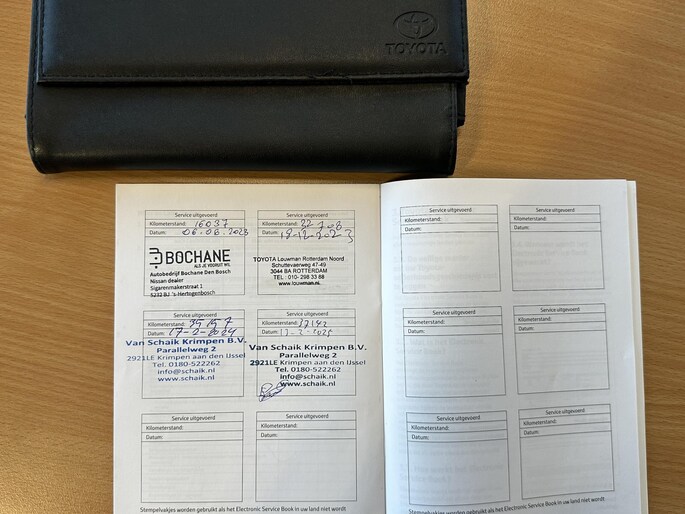 TOYOTA
Service uitgevoerd
Kilometerstand: 16037
Datum: 06.06.2023
BOCHANE
ALS JE VOORUIT WIL
Autobedrijf Bochane Den Bosch
Nissan dealer
Sigarenmakerstraat 1
5232 BJ 's Hertogenbosch
Service uitgevoerd
Kilometerstand: 32708
Datum: 18-12-2023
TOYOTA Louwman Rotterdam Noord
Schuttevaerweg 47-49
3044 BA ROTTERDAM
TEL : 010- 298 33 88
www.louwman.nl
Service uitgevoerd
Kilometerstand:
Datum: 17-2-2024
Van Schaik Krimpen B.V.
Parallelweg 2
2921LE Krimpen aan den IJssel
Tel. 0180-522262
info@schaik.nl
www.schaik.nl
Service uitgevoerd
Kilometerstand:
Datum:
Van Schaik Krimpen B.V.
Parallelweg 2
2921LE Krimpen aan den IJssel
Tel. 0180-522262
info@schaik.nl
www.schaik.nl
Service uitgevoerd
Kilometerstand:
Datum:
Service uitgevoerd
Kilometerstand:
Datum:
Stempelvakjes worden gebruikt als het Electronic Service Book in uw land niet wordt
Service uitgevoerd
Kilometerstand:
Datum:
Service uitgevoerd
Kilometerstand:
Datum:
Service uitgevoerd
Kilometerstand:
Datum:
Service uitgevoerd
Kilometerstand:
Datum:
Service uitgevoerd
Kilometerstand:
Datum:
Service uitgevoerd
Kilometerstand:
Datum:
Stempelvakjes worden gebruikt als het Electronic Service Book in uw land niet wordt